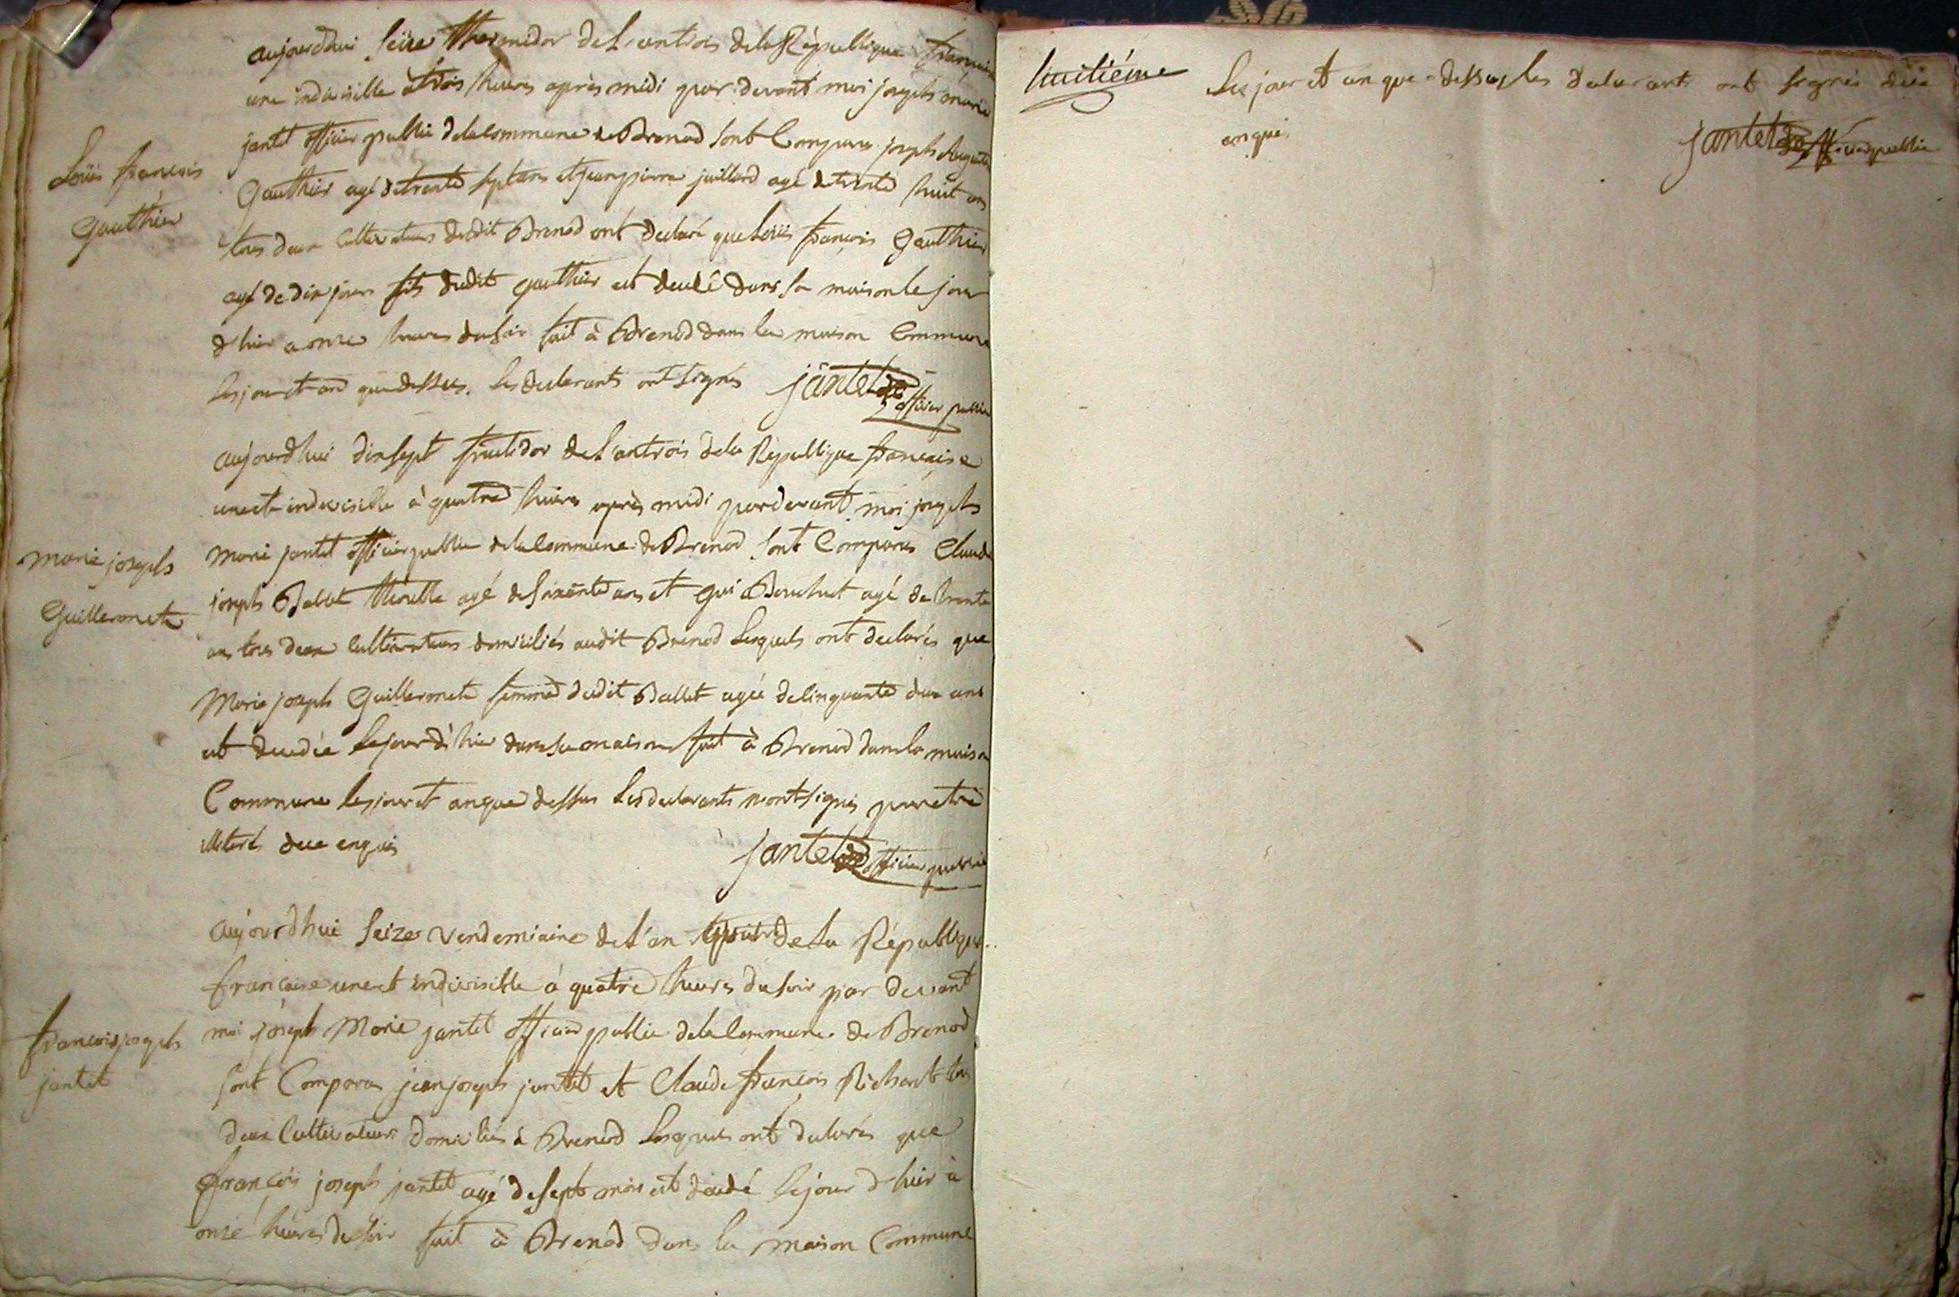 aujourdhui seize thermidor de l'an trois de la République française
une indivisible à trois heures après midi par devant moi joseph marie
jantet officier public de la commune de Brenod sont Comparus joseph Augustin
Louis françois
Gauthier
Gauthier agé de trente sept ans et jean pierre juillard agé de trente huit ans
tous deux Cultivateurs dudit Brenod ont declaré que Louis françois Gauthier
agé de dix jours fils dudit gauthier est decedé dans sa maison le jour
d'hier a onze heures du soir fait à Brenod dans la maison Commune
les jour et and que dessus. les declarants ont signés jantet officier public
aujourdhui dixsept fructidor de l'an trois de la République française
une et indivisible à quatre heures après midi pardevant moi joseph
marie joseph
Guilleronete
Marie jantet officier public de la Commune de Brenod sont Comparus Claude
joseph Ballet agé de soixante ans et Gui Bouchut agé de trente
ans tous deux cultivateurs domiciliés audit Brenod lesquels ont declarés que
Marie joseph Guilleronete femme dudit Ballet agée de cinquante deux ans
est decedée le jour d'hier dans sa maison fait à Brenod dans la maison
Commune les jour et an que dessus les declarants n'ont signés pour etre
illiterés de ce enquis jantet officier public
aujourdhui seize vendemiaire de l'an quatre de la République
française une et indivisible à quatre heures du soir par devant
françois joseph
jantet
moi joseph Marie jantet officier public de la Commune de Brenod
sont Comparus jean joseph jantet et Claude françois Richard tous
deux Cultivateurs domiciliés à Brenod lesquels ont declarés que
françois joseph jantet agé de sept mois est decedé le jour d'hier à
onze heures du soir fait à Brenod dans la maison Commune
huitiéme
les jour et an que dessus les declarants ont signés de ce
enquis
jantet officier public